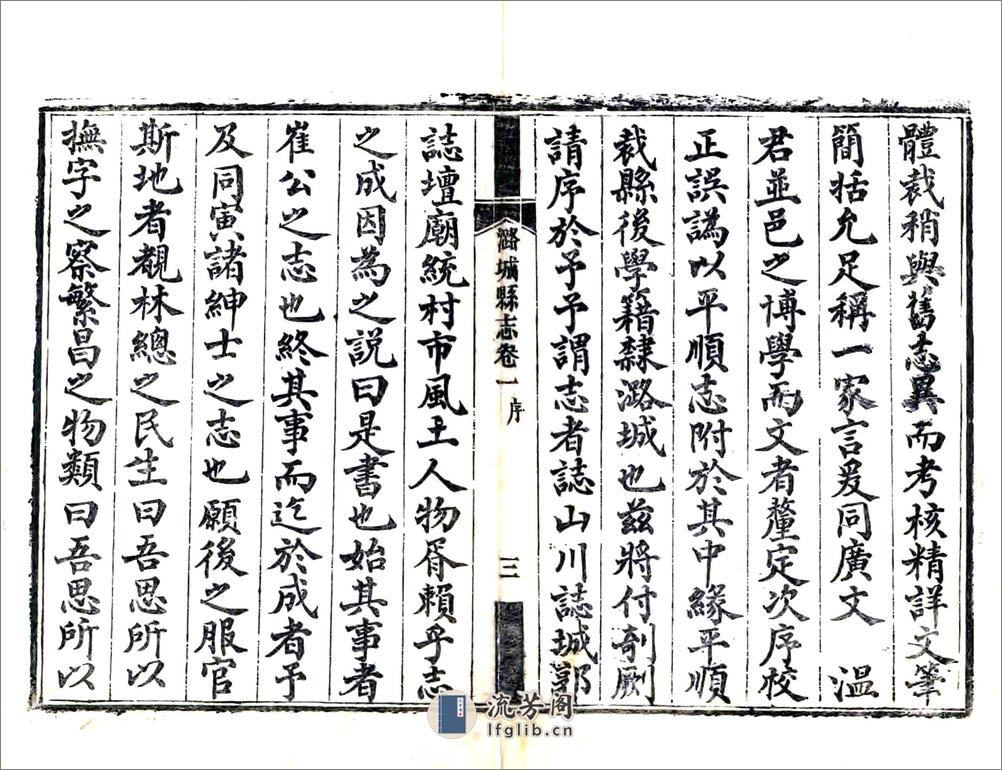 體裁稍與舊志異而考核精詳文筆
簡括允足稱一家言爰同廣文　溫
君並邑之博學而文者釐定次序校
正誤譌以平順志附於其中緣平順
裁縣後學籍隸潞城也茲將付剞劂
請序於予予謂志者誌山川誌城郭
潞城縣志卷一　序　三
誌壇廟統村市風土人物胥賴乎志
之成因為之説曰是書也始其事者
崔公之志也終其事而迄於成者予
及同寅諸紳士之志也願後之服官
斯地者覩林總之民生曰吾思所以
撫字之察繁昌之物類曰吾思所以
流芳阁
lfglib.cn